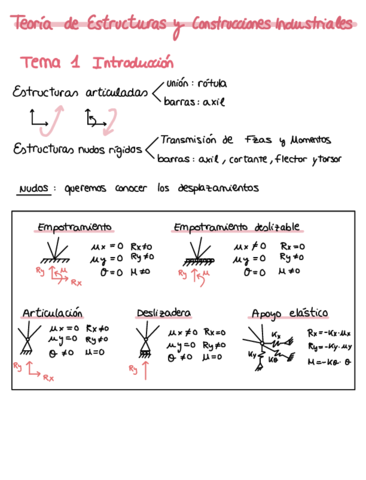 Teoría de Estructuras y Construcciones Industriales
Tema 1 Introducción
Estructuras articuladas
unión: rótula
barras: axil
Estructuras nudos rígidos
Transmisión de Fzas y Momentos
barras: axil, cortante, flector y torsor
Nudos: queremos conocer los desplazamientos
Empotramiento
μx = 0 Rx≠0
μy = 0 Ry≠0
θ = 0 M≠0
Ry M Rx
Empotramiento deslizable
μx ≠ 0 Rx=0
μy = 0 Ry≠0
θ=0 M≠0
Ry
Articulación
μx = 0 Rx≠0
μy=0 Ry≠0
θ ≠0 M=0
Ry Rx
Deslizadera
μx ≠0 Rx=0
μy =0 Ry≠0
θ ≠0 M=0
Ry
Apoyo elástico
Kx
Ky
Kθ
Rx=-Kx·μx
Ry=-Ky·μy
M=-Kθ·θ